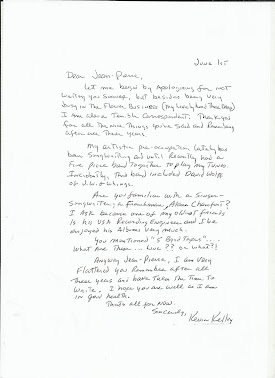 June 15
Dear Jean-Pierre,
Let me begin by Apologizing for not
writing you sooner, but besides being very
busy in the Flower Business (my lovely
I Am also a Terrible Correspondent. Thankyou
for all the nice Things you've said and Remembering
after all these years.
My artistic pre-occupation lately has
been Songwriting and until Recently had a
Five piece band Together to play my Tunes.
Incidently, This band included David
of
Are you familiar with a Singer-
Songwriter, a Frenchman, Alain Chamfort?
I Ask because one of my oldest friends
Is his USA Recording Engineer and I've
enjoyed his Albums very much.
You mentioned "5 Byrd Tapes"..
What Are They... Live?? or what??
Anyway Jean-Pierre, I am very
Flattered you Remember after all
these years and have Taken the Time to
Write. I hope you are well as I am
in good health.
That's all for now.
Sincerely,
Kevin Kelley